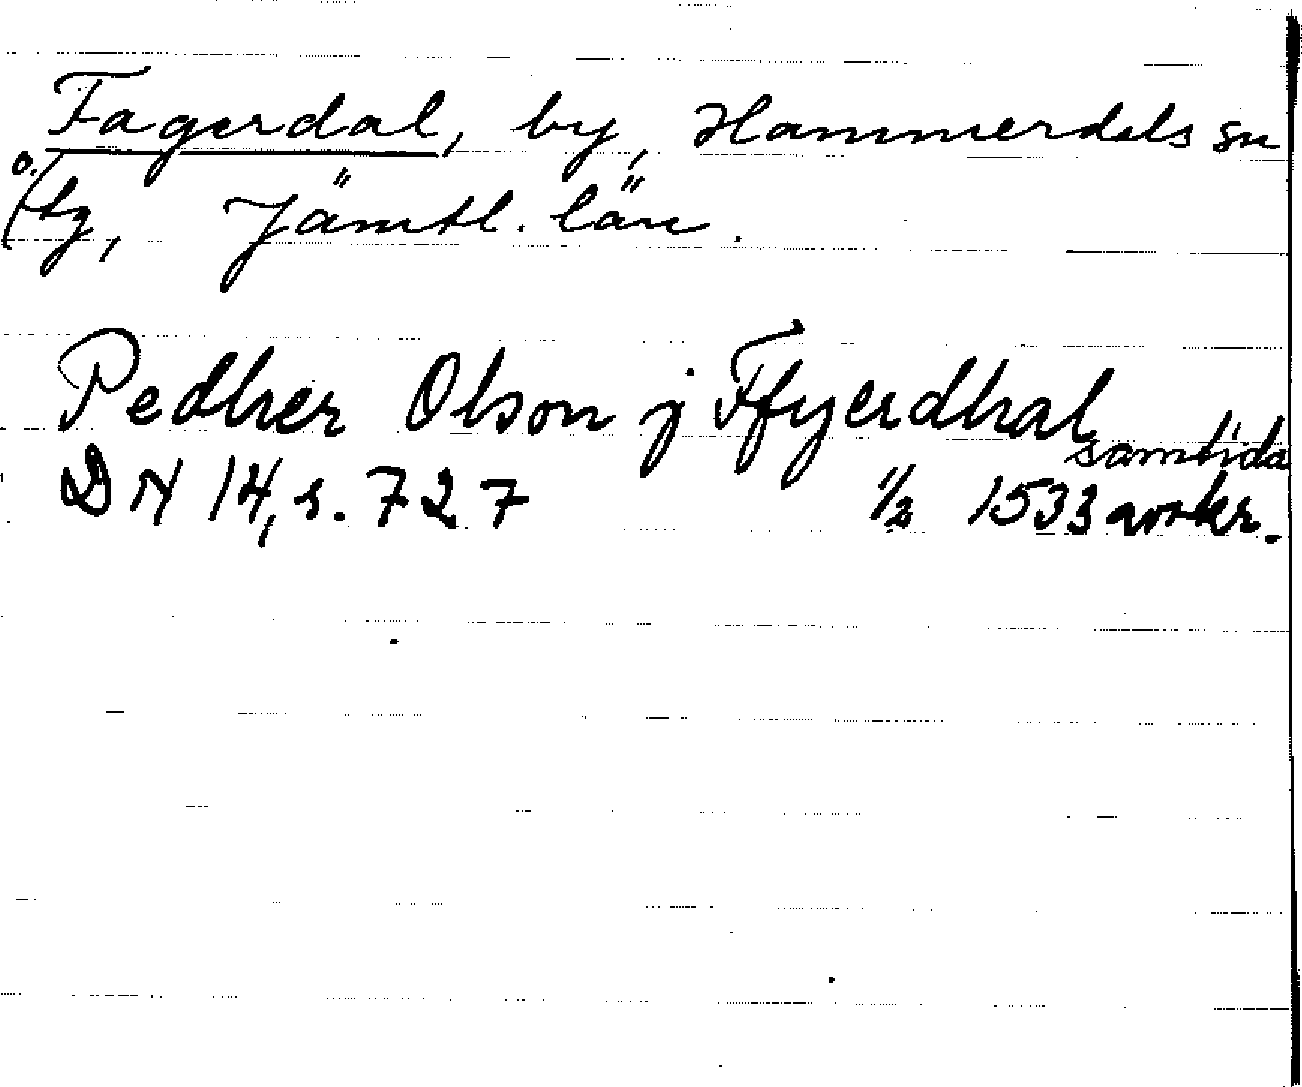 Fagerdal, by, Hammerdals sn
o. tg, Jämtl. län.
Pedher Olson j Ffyerdhal
samtida
DN 14, s. 727 1/2 1533 avskr.